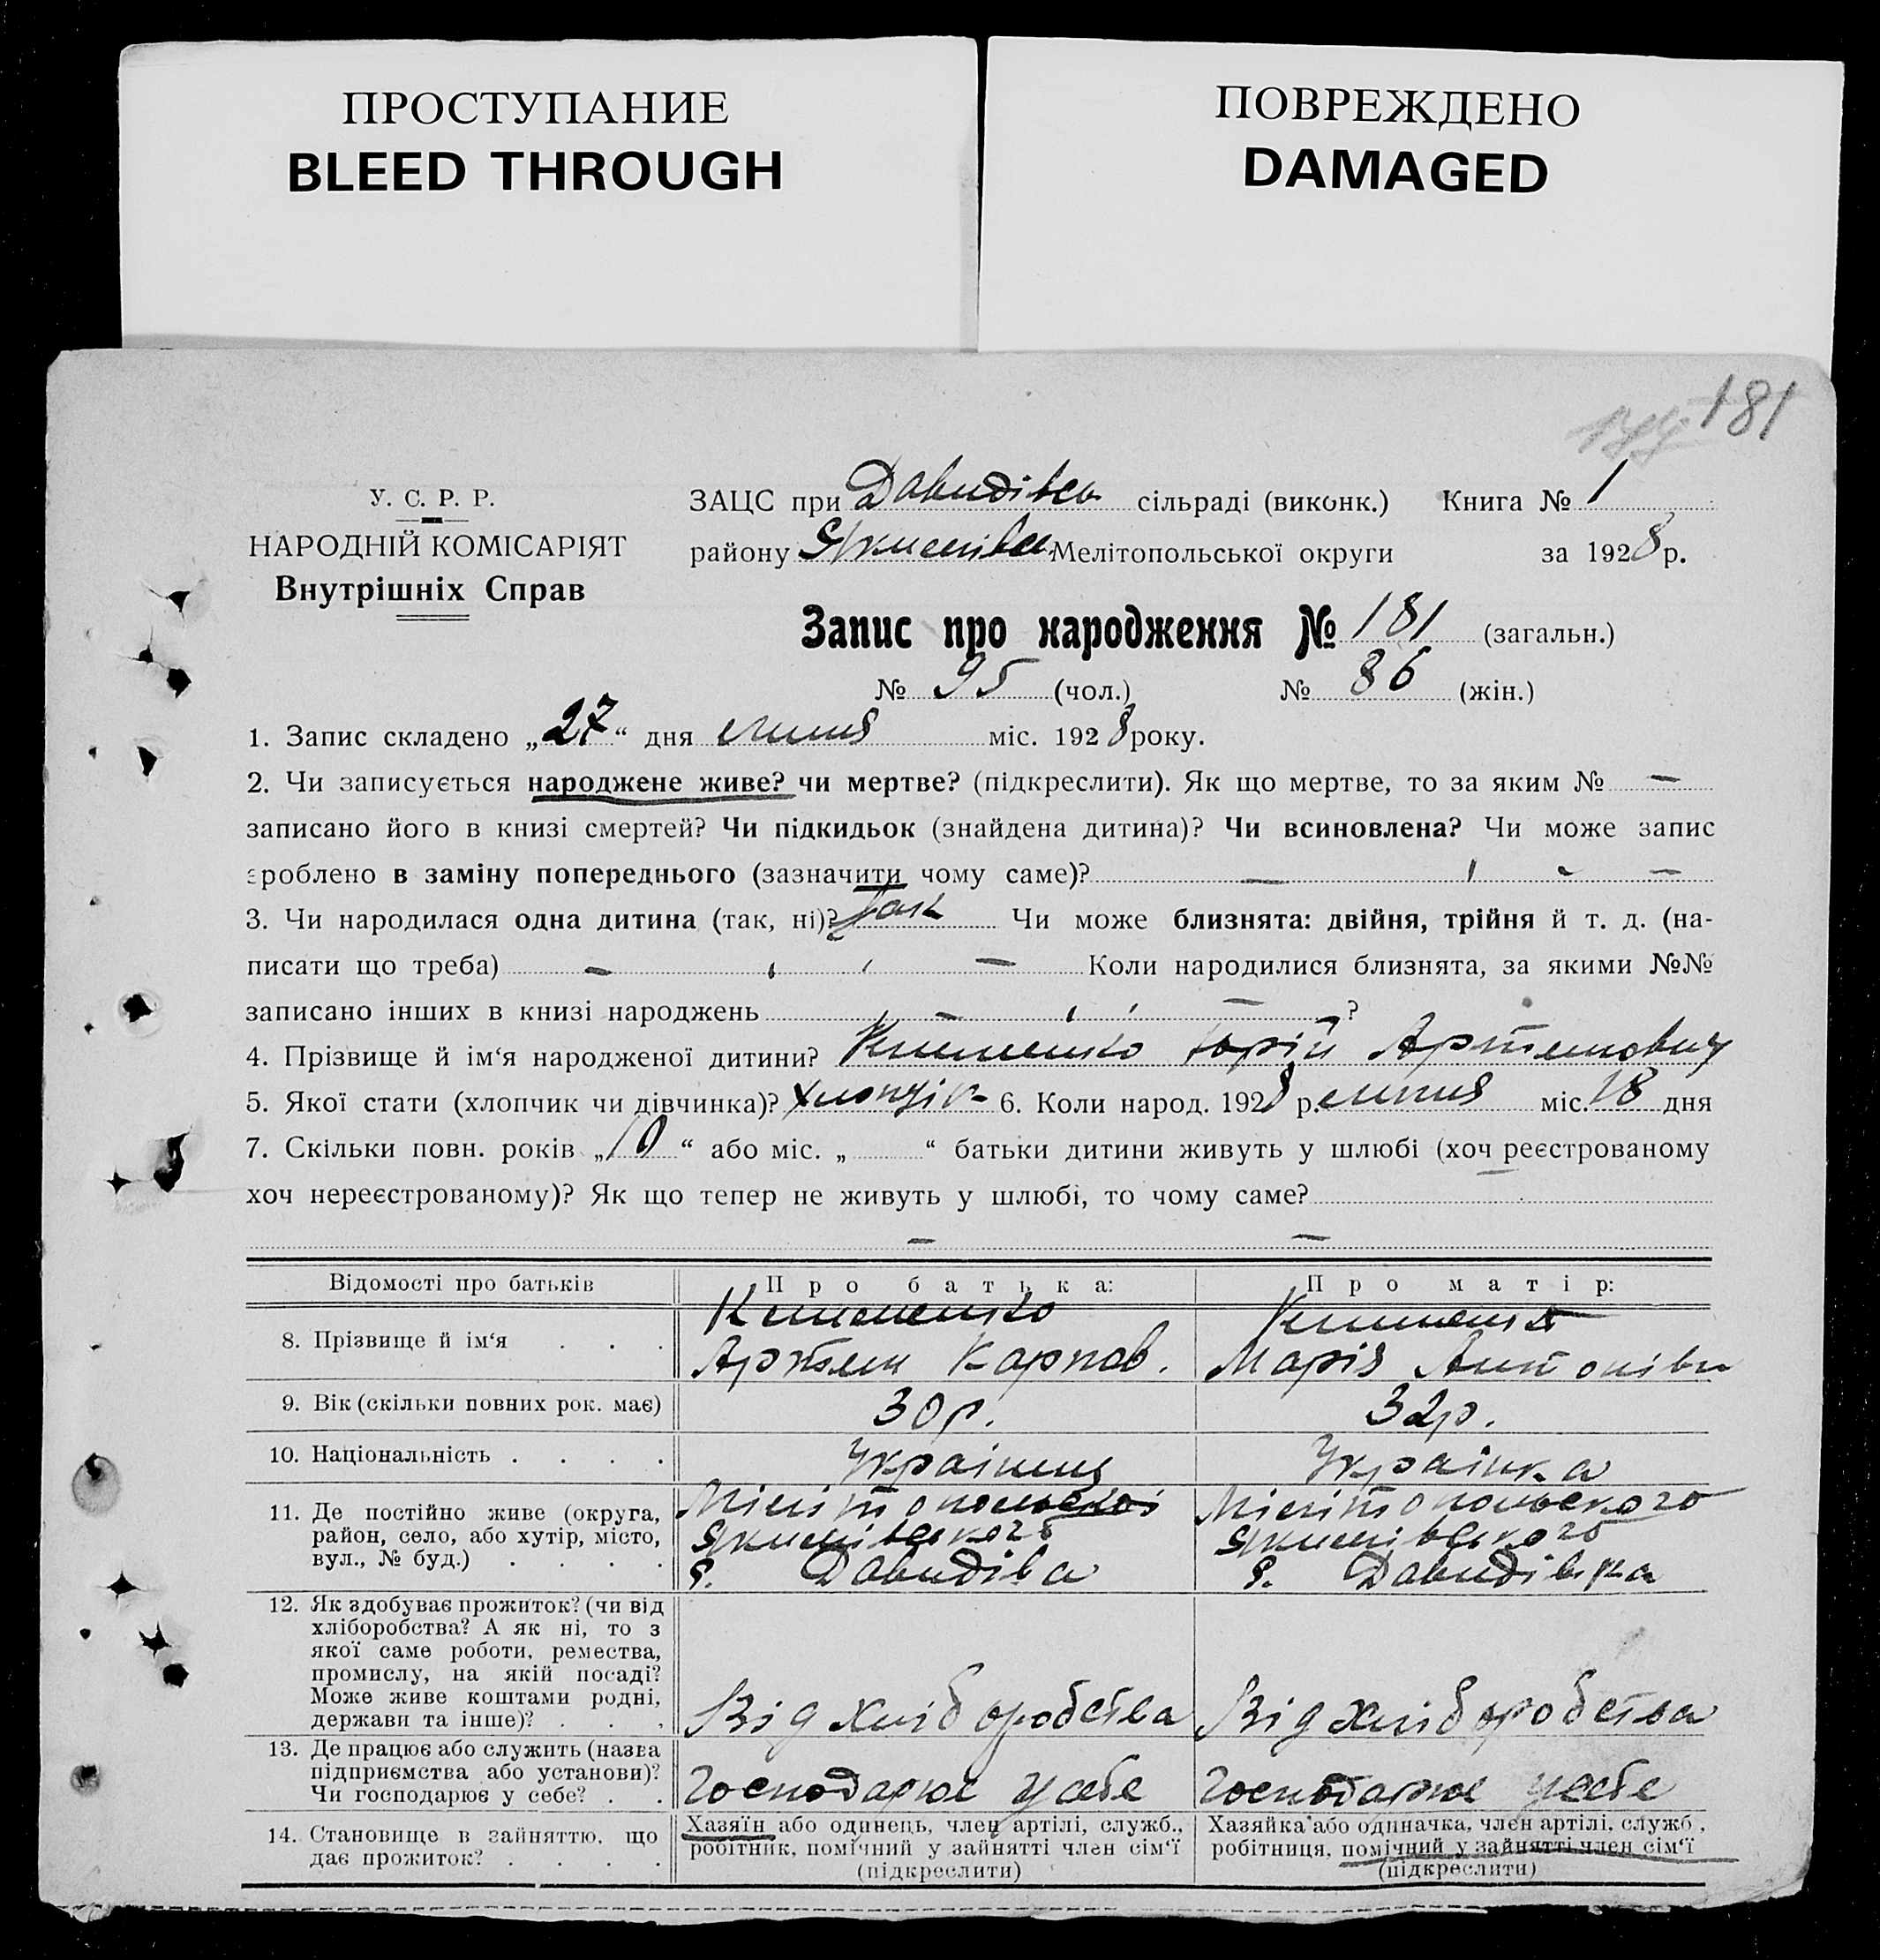 ПРОСТУПАНИЕ
BLEED THROUGH
ПОВРЕЖДЕНО
DAMAGED
181
У. С. Р. Р.
НАРОДНІЙ КОМІСАРІЯТ
Внутрішніх Справ
ЗАЦС при Давидівсь. сільраді (виконк.) Книга № 1
району Якимівськ Мелітопольської округи за 1928 р.
Запис про народження № 181 (загальн.)
№ 95 (чол.) № 86 (жін.)
1. Запис складено „27“ дня липня міс. 1928 року.
2. Чи записується народжене живе? чи мертве? (підкреслити). Як що мертве, то за яким № —
записано його в книзі смертей? Чи підкидьок (знайдена дитина)? Чи всиновлена? Чи може запис
зроблено в заміну попереднього (зазначити чому саме)? —
3. Чи народилася одна дитина (так, ні)? так Чи може близнята: двійня, трійня й т. д. (на-
писати що треба) — — Коли народилися близнята, за якими №№
записано інших в книзі народжень — — ?
4. Прізвище й ім‘я народженої дитини? Клименко Юрій Артемович
5. Якої стати (хлопчик чи дівчинка)? хлопчік 6. Коли народ. 1928 р. липня міс. 18 дня
7. Скільки повн. років „10“ або міс. „ “ батьки дитини живуть у шлюбі (хоч реєстрованому
хоч нереєстрованому)? Як що тепер не живуть у шлюбі, то чому саме?
— —
Відомості про батьків
Про батька:
Про матір:
8. Прізвище й ім‘я . . .
Клименко
Артем Карпов.
Клименко
Марія Антонівн
9. Вік (скільки повних рок. має)
30 р.
32 р.
10. Національність . . . .
Українець
Українка
11. Де постійно живе (округа,
район, село, або хутір, місто,
вул., № буд.) . . . .
Мілітопольської
Якимівського
с. Давидівка
Мілітопольського
Якимівського
с. Давидівка
12. Як здобуває прожиток? (чи від
хліборобства? А як ні, то з
якої саме роботи, ремества,
промислу, на якій посаді?
Може живе коштами родні,
держави та інше)? . . .
Від хліборобства
Від хліборобства
13. Де працює або служить (назва
підприємства або установи)?
Чи господарює у себе? . .
Господарює у себе
Господарює у себе
14. Становище в зайняттю, що
дає прожиток? . . . .
Хазяїн або одинець, член артілі, служб.,
робітник, помічний у зайнятті член сім‘ї
(підкреслити)
Хазяйка або одиначка, член артілі, служб.,
робітниця, помічний у зайнятті член сім‘ї
(підкреслити)